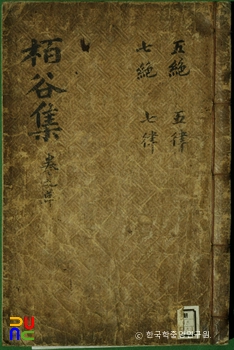 五絶 五律
七絶 七律
栢谷集 卷
© 한국학중앙연구원